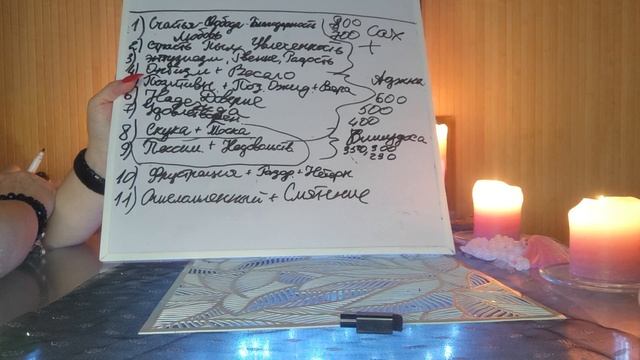 1) Счастье Свобода Благодарность 800
Любовь 700 Сах
2) Страсть Пыл, Увлеченность +
3) Энтузиазм, Рвение, Радость
4) Оптизм + Весело Аджна
5) Позитивн + Поз. Ожид + Вера 600
6) Надежд Доверие 500
7) 400
8) Скука + Тоска Вишудха
9) Пессим + 350, 300
290
10) Фрустрация + Раздр + Нетерп
11) + Смятение